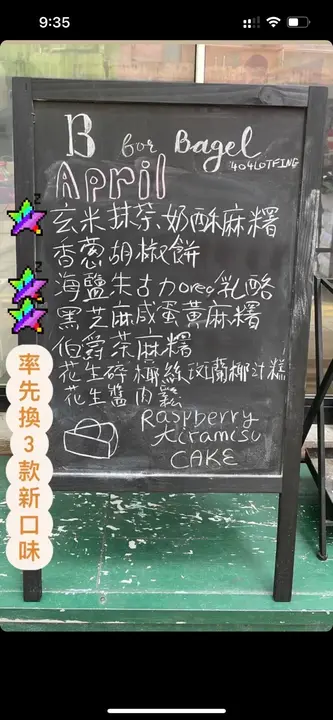 9:35
B for Bagel
404LOTFING
April
玄米抹茶奶酥麻糬
香蔥胡椒餅
海鹽朱古力oreo乳酪
黑芝麻咸蛋黃麻糬
伯爵茶麻糬
花生碎椰絲斑蘭椰汁糕
花生醬肉鬆
Raspberry
tiramisu
CAKE
率先換3款新口味